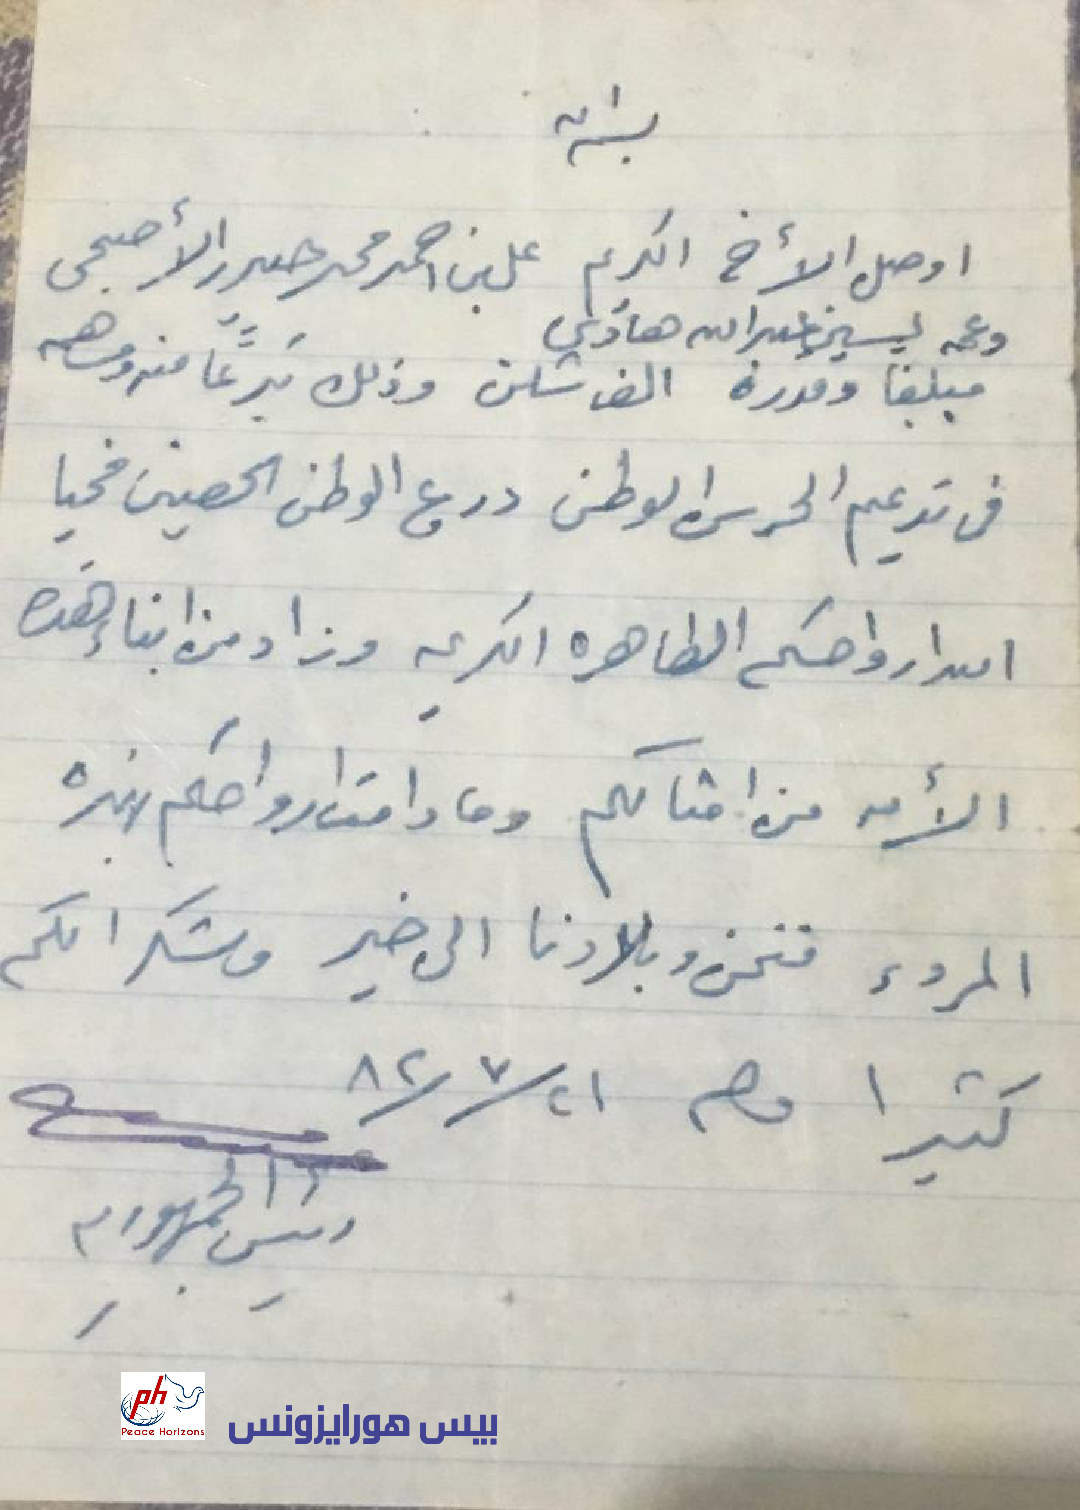 بسم الله
اوصل الأخ الكريم علي بن احمد محمد حيدر الأصبحي
وعمه يسين عبدالله هادي
مبلغا وقدره الف شلن وذلك تبرعًا منه ومنهم
في تدعيم الحرس الوطني درع الوطن الحصين فحيا
الله ارواحكم الطاهره الكريمه وزاد من ابناء هذه
الأمه من امثالكم وما دامت ارواحكم بهذه
المروءه فنحن وبلادنا الى خير وشكرا لكم
كثيرا ٢١/٧/٨٢
رئيس الجمهوريه
ph
Peace Horizons
بيس هورايزونس